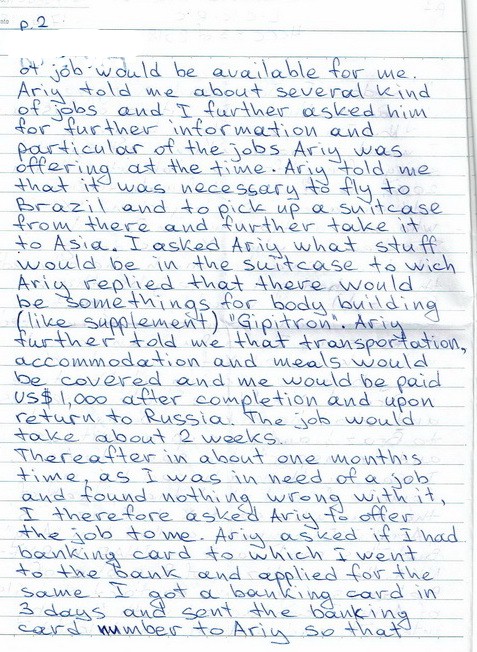 p. 2
of job would be available for me.
Ariy told me about several kind
of jobs and I further asked him
for further information and
particular of the jobs Ariy was
offering at the time. Ariy told me
that it was necessary to fly to
Brazil and to pick up a suitcase
from there and further take it
to Asia. I asked Ariy what stuff
would be in the suitcase to wich
Ariy replied that there would
be somethings for body building
(like supplement) "Gipitron". Ariy
further told me that transportation,
accommodation and meals would
be covered and me would be paid
US$ 1,000 after completion and upon
return to Russia. The job would
take about 2 weeks.
Thereafter in about one month's
time, as I was in need of a job
and found nothing wrong with it,
I therefore asked Ariy to offer
the job to me. Ariy asked if I had
banking card to which I went
to the bank and applied for the
same. I got a banking card in
3 days and sent the banking
card number to Ariy so that